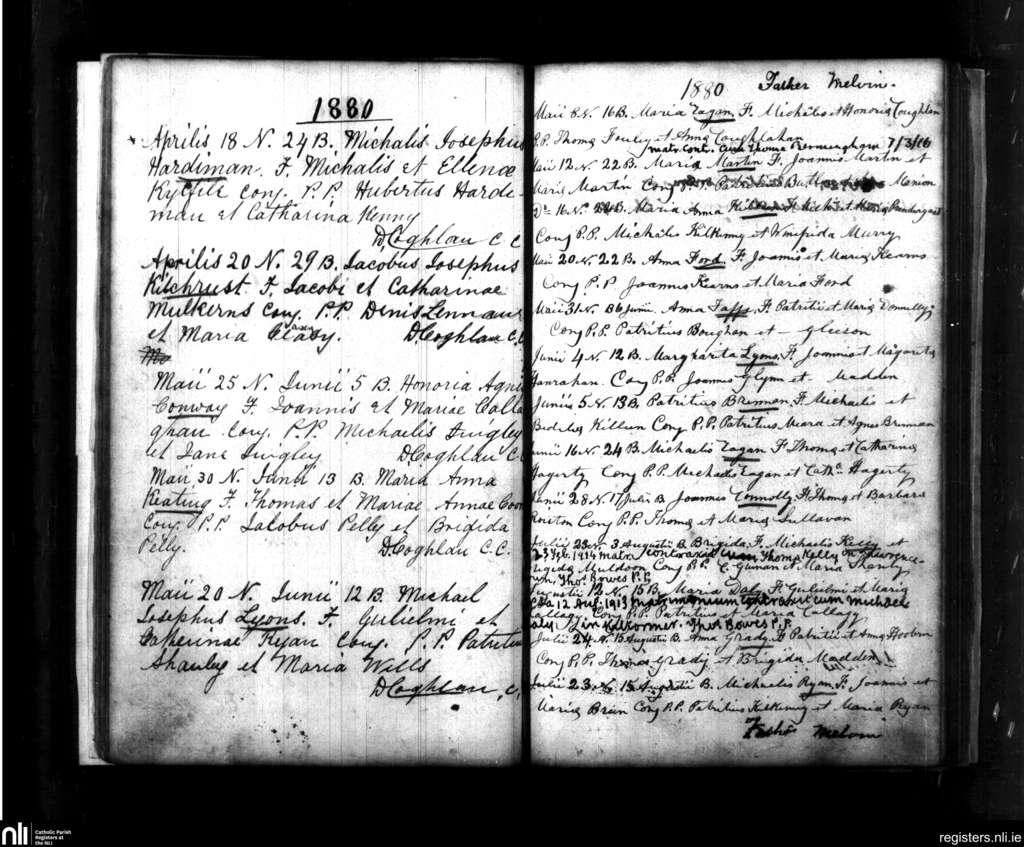 1880
Aprilis 18 N. 24 B. Michalis Josephus
Hardiman F. Michalis et Ellenae
Kyctile conj. P.P. Hubertus Hardi-
man et Catharina Kenny
D. Coghlan C C
Aprilis 20 N. 29 B. Jacobus Josephus
Kilchrust F. Jacobi et Catharinae
Mulkerns conj. P.P. Denis Lennane
et Maria D. Coghlan C.C
Maii 25 N. Junii 5 B. Honoria Agni
Conway F. Joannis et Mariae Calla
ghan conj. P.P. Michaelis Dingley
et Jane Dingley D. Coghlan C.
Maii 30 N. Junii 13 B. Maria Anna
Keating F. Thomas et Mariae Annae
Conj. P.P. Jacobus Pelly et Brigida
Pelly. D. Coghlan C.C.
Maii 20 N. Junii 12 B. Michael
Josephus Lyons. F. Gulielmi et
Catherinae Ryan conj. P.P. Patritius
Shauley et Maria Wills
D. Coghlan, C.
1880 Father Melvin.
Maii 8 N. 16 B. Maria Eagan F. Michælis et Honoria Coughlan
P.P. Thoma et Anna
matr. cont. cum Thoma Bermingham 7/3/16
Maii 12 N. 22 B. Maria Martin F. Joannis Martin et
Maria Martin Conj P.P. Patritius Manion
Do 16 N. 24 B. Maria Anna
Conj P.P. Michælis Kilkenny et Winifrida Murry
Maii 20 N. 22 B. Anna Ford F. Joannis et Maria Kearns
Conj P.P Joannis Kearns et Maria Ford
Maii 31 N. B 6 Junii. Anna Taffe F. Patritii et Maria Donnelly
Conj P.P. Patritius Boughan et — Gleeson
Junii 4 N. 12 B. Margharita Lyons F. Joannis et Margarita
Hanrahan. Conj P.P. Joannes Glynn et Madden
Junii 5 N. 13 B. Patritius Brennan F. Michaelis et
Killun Conj P.P. Patritius Meara et Agnes Brennan
Junii 16 N. 24 B. Michaelis Eagan F. Thoma et Catharina
Hagerty Conj P.P. Michaelis Eagan et Cath. Hagerty
Junii 28 N. 17 Julii B Joannes Connolly F. Thoma et Barbara
Conj P.P. Thoma et Maria Sullavan
Julii 23 N. 3 Augustii B. Brigida F. Michaelis Kelly et
23 Feb. 1914 matr. contraxit cum Thoma Kelly in Lawrence-
Brigida Muldoon Conj P.P. C. Guinan et Maria Shanly
Thos Bowes P.P.
Augustii 12 N. 15 B. Maria Daly F. Gulielmi et Maria
12 Aug. 1913 matrimonium contraxit cum Michaele
Conj P.P. Patritius Maria Callagy
Daly in Kiltormer. Thos Bowes P.P.
Julii 24 N. 15 Augustii B. Anna Grady F. Patritii et Anna
Conj P.P. Thomas Grady et Brigida Madden
Julii 23 N. 15 Augustii B. Michaelis Ryan F. Joannis et
Maria Brien Conj P.P. Patritius Kilkenny et Maria Ryan
Father Melvin
nli
Catholic Parish
Registers at
the NLI
registers.nli.ie